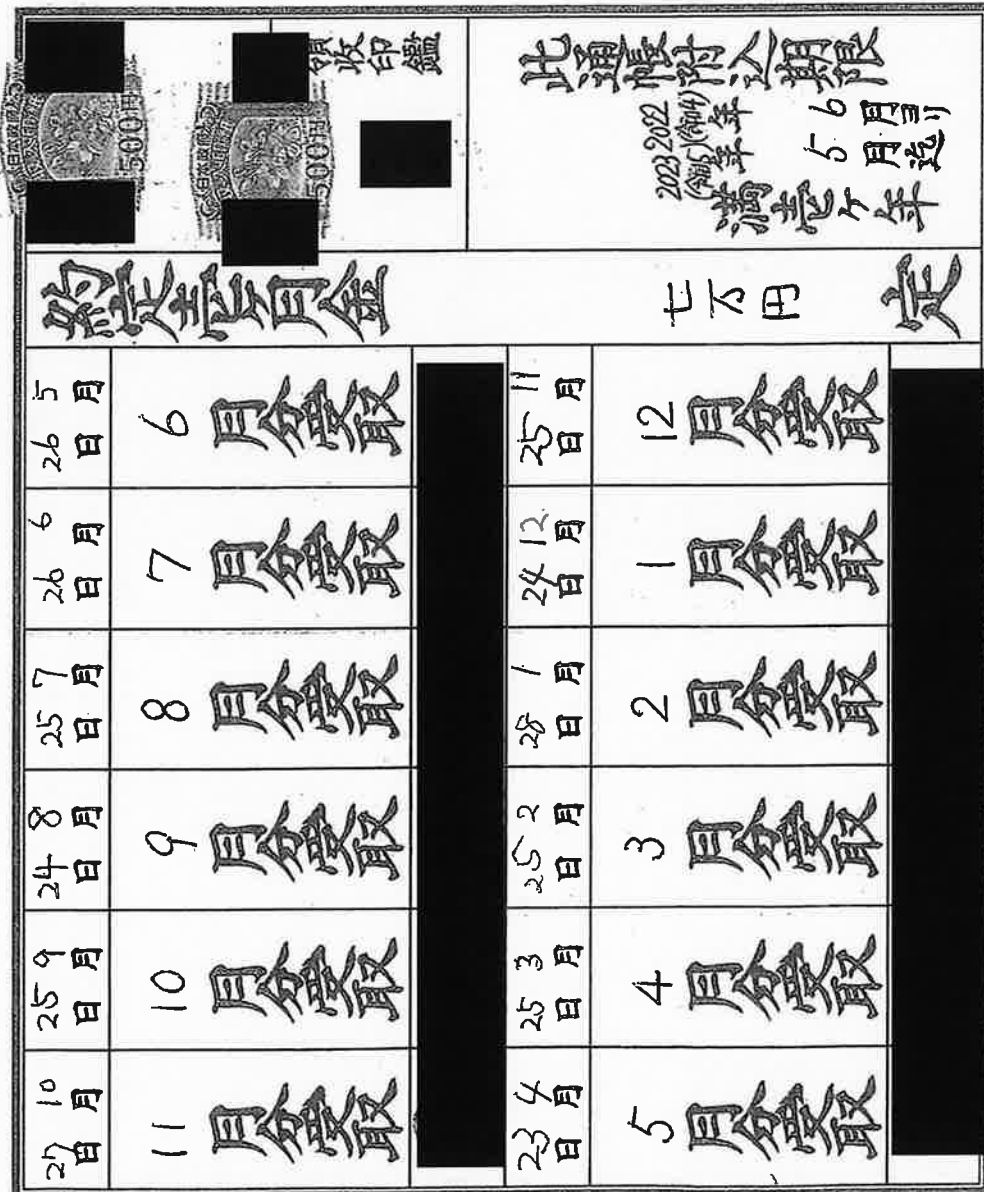 此通帳附込期限
2022(令和4)年 6月ヨリ
2023(令和5)年 5月迄
満壱ヶ年
領収印鑑
500円
500円
約定壱ヶ月金 七万円 定
5月26日 6月分受取
6月26日 7月分受取
7月25日 8月分受取
8月24日 9月分受取
9月25日 10月分受取
10月27日 11月分受取
11月25日 12月分受取
12月24日 1月分受取
1月28日 2月分受取
2月25日 3月分受取
3月25日 4月分受取
4月23日 5月分受取